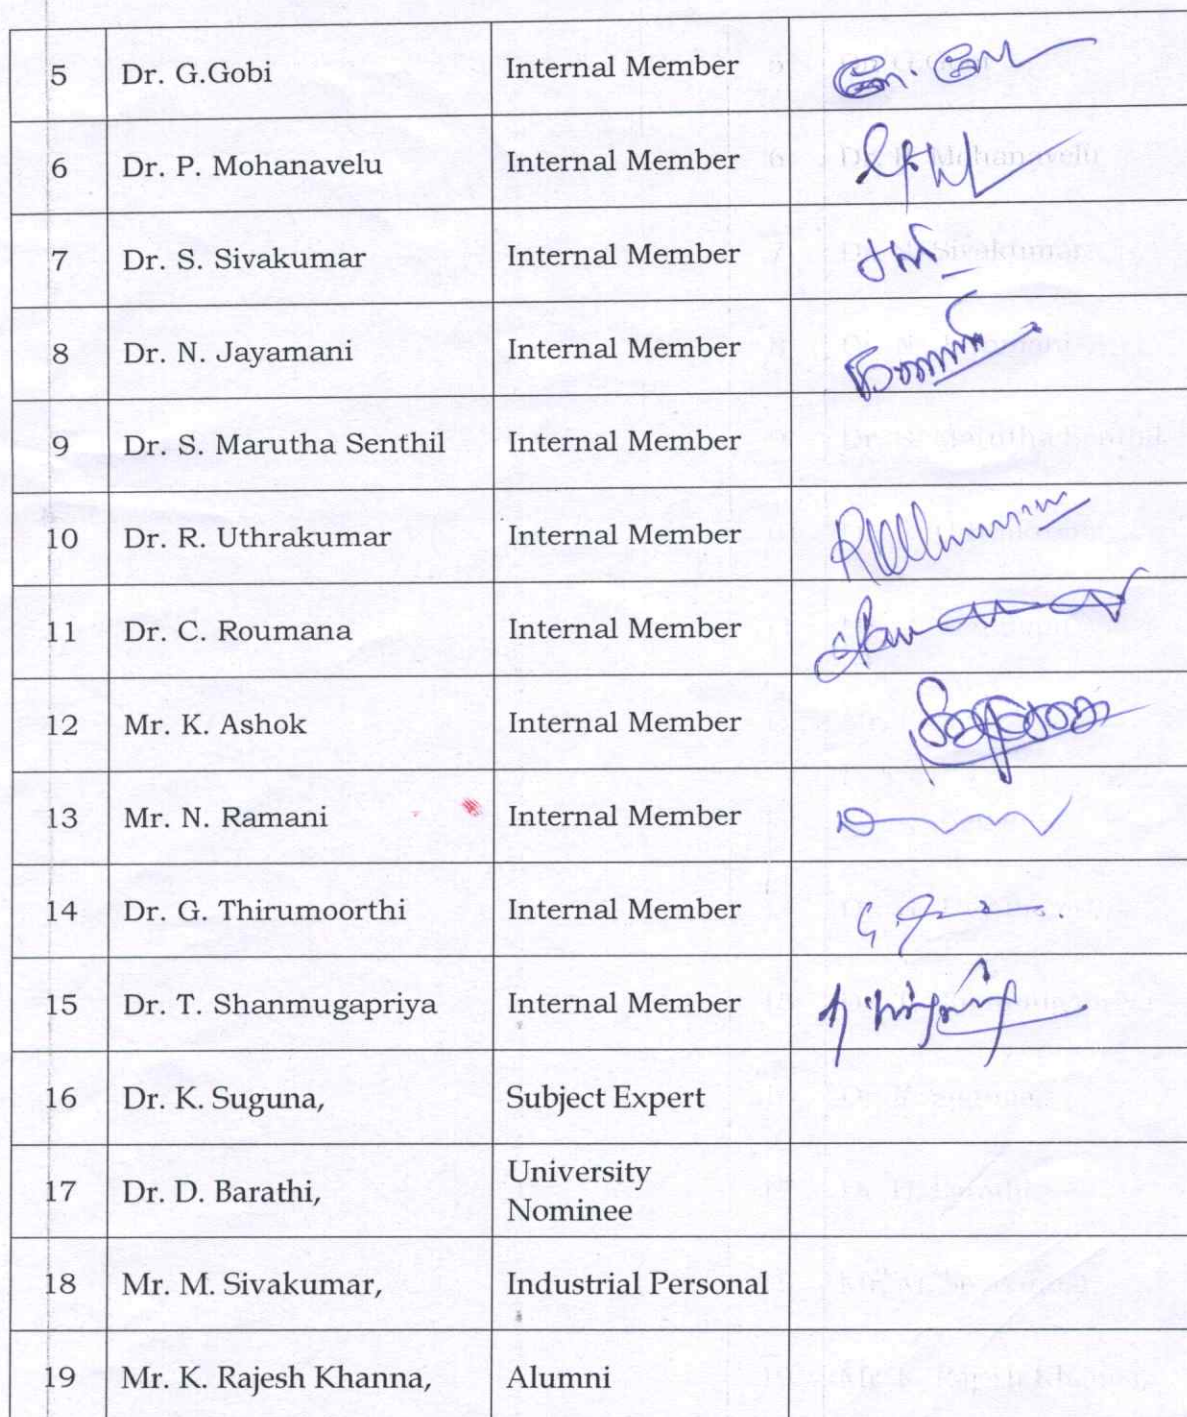 5 Dr. G.Gobi Internal Member
6 Dr. P. Mohanavelu Internal Member
7 Dr. S. Sivakumar Internal Member
8 Dr. N. Jayamani Internal Member
9 Dr. S. Marutha Senthil Internal Member
10 Dr. R. Uthrakumar Internal Member
11 Dr. C. Roumana Internal Member
12 Mr. K. Ashok Internal Member
13 Mr. N. Ramani Internal Member
14 Dr. G. Thirumoorthi Internal Member
15 Dr. T. Shanmugapriya Internal Member
16 Dr. K. Suguna, Subject Expert
17 Dr. D. Barathi, University
Nominee
18 Mr. M. Sivakumar, Industrial Personal
19 Mr. K. Rajesh Khanna, Alumni